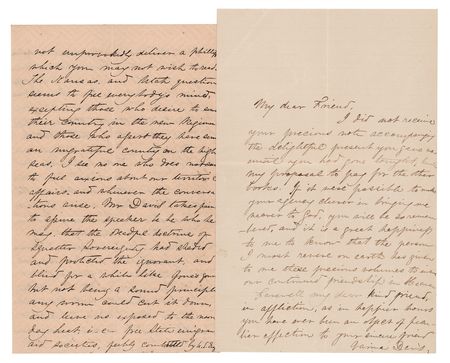 not unprovokedly deliver a philip
which you may not wish to read.
The Kansas, and Utah question
seems to fill everybody's mind
excepting those who desire to serve
their Country in the new Regimen
and those who assert they have served
an ungrateful country on the high
seas. I see no one who does not seem
to feel anxious about our territorial
affairs. and whenever the conversa
tions arise. Mr Davis takes pain
to assure the speaker be he who he
may, that the
Squatter Sovereignty had shaded
and protected the ignorant, and
blind for a while like
but not being a sound principle
any worm could cut it down,
and leave us exposed to the noon
day heat, i.e. free State emigrant
aid societies,
My dear Friend,
I did not receive
your precious note accompanying
the delightful present you gave us
until you had gone
my proposes to pay for the other
books. If it were possible to make
your agency clearer in bringing me
nearer to God, you will be so remem
bered, and it is a great happiness
to me to know that the person
I most revere on earth has given
to me these precious volumes to
our continued friendship in Heaven
Farewell my dear kind friend,
in affliction, as in happier hours
you have ever been an object of
affection to your sincere friend
Varina Davis.